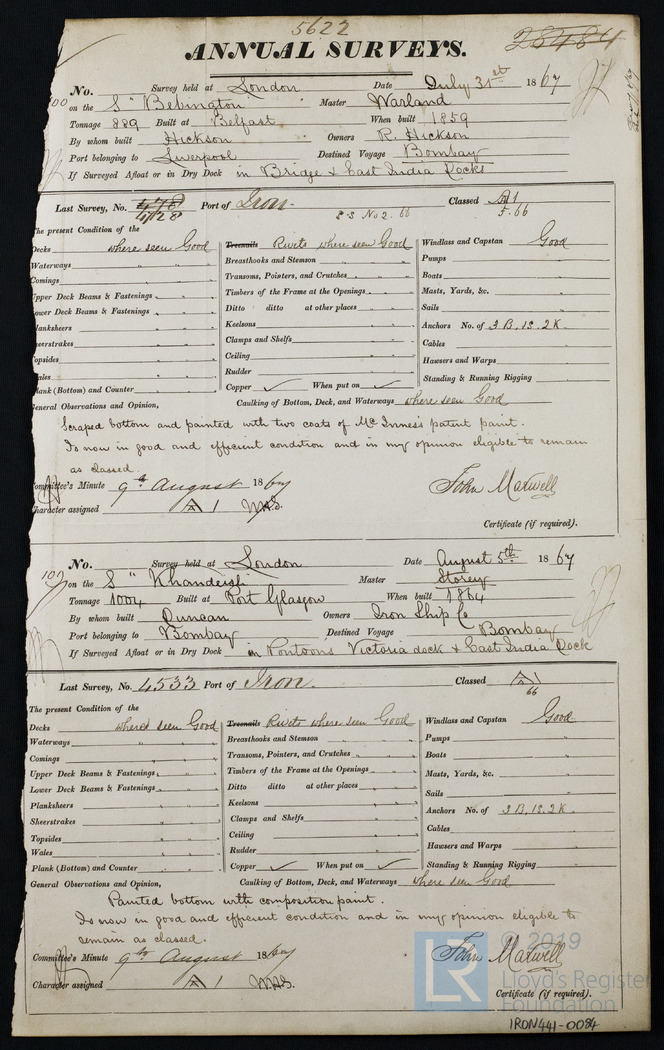 5622
28484
ANNUAL SURVEYS.
No. Survey held at London Date July 31st 1867
on the S "Bebington Master Warland
Tonnage 889 Built at Belfast When built 1859
By whom built Hickson Owners R. Hickson
Port belonging to Liverpool Destined Voyage Bombay
If Surveyed Afloat or in Dry Dock in Bridge & East India Docks
Last Survey, No. 478 Port of Iron. Classed A1
4128 SS No 2. 66 5.66
The present Condition of the
Decks where seen Good Treenails Rivets where seen Good Windlass and Capstan Good
Waterways " " Breasthooks and Stemson " " Pumps "
Comings " " Transoms, Pointers, and Crutches " " Boats "
Upper Deck Beams & Fastenings " " Timbers of the Frame at the Openings " " Masts, Yards, &c. "
Lower Deck Beams & Fastenings " " Ditto ditto at other places " " Sails "
Planksheers " " Keelsons " " Anchors No. of 3 B, 1S. 2K.
Sheerstrakes " " Clamps and Shelfs " " Cables "
Topsides " " Ceiling " " Hawsers and Warps "
Wales " " Rudder " " Standing & Running Rigging "
Plank (Bottom) and Counter " " Copper ✓ When put on ✓
General Observations and Opinion, Caulking of Bottom, Deck, and Waterways where seen Good
Scraped bottom and painted with two coats of McInness patent paint.
Is now in good and efficient condition and in my opinion eligible to remain
as classed.
Committee's Minute 9th August 1867 John Maxwell
Character assigned A 1
Certificate (if required).
No. Survey held at London Date August 5th 1867
on the S "Khandeish Master Storey
Tonnage 1004 Built at Port Glasgow When built 1864
By whom built Duncan Owners Iron Ship Co
Port belonging to Bombay Destined Voyage Bombay
If Surveyed Afloat or in Dry Dock in Pontoons Victoria dock & East India Dock
Last Survey, No. 4533 Port of Iron. Classed A 1
66
The present Condition of the
Decks where seen Good Treenails Rivets where seen Good Windlass and Capstan Good
Waterways " " Breasthooks and Stemson " " Pumps "
Comings " " Transoms, Pointers, and Crutches " " Boats "
Upper Deck Beams & Fastenings " " Timbers of the Frame at the Openings " " Masts, Yards, &c. "
Lower Deck Beams & Fastenings " " Ditto ditto at other places " " Sails "
Planksheers " " Keelsons " " Anchors No. of 3 B, 1S. 2K.
Sheerstrakes " " Clamps and Shelfs " " Cables "
Topsides " " Ceiling " " Hawsers and Warps "
Wales " " Rudder " " Standing & Running Rigging "
Plank (Bottom) and Counter " " Copper ✓ When put on ✓
General Observations and Opinion, Caulking of Bottom, Deck, and Waterways where seen Good
Painted bottom with composition paint.
Is now in good and efficient condition and in my opinion eligible to
remain as classed.
Committee's Minute 9th August 1867 John Maxwell
Character assigned A 1
Certificate (if required).
LR © 2019
Lloyd's Register
Foundation
IRON441-0084